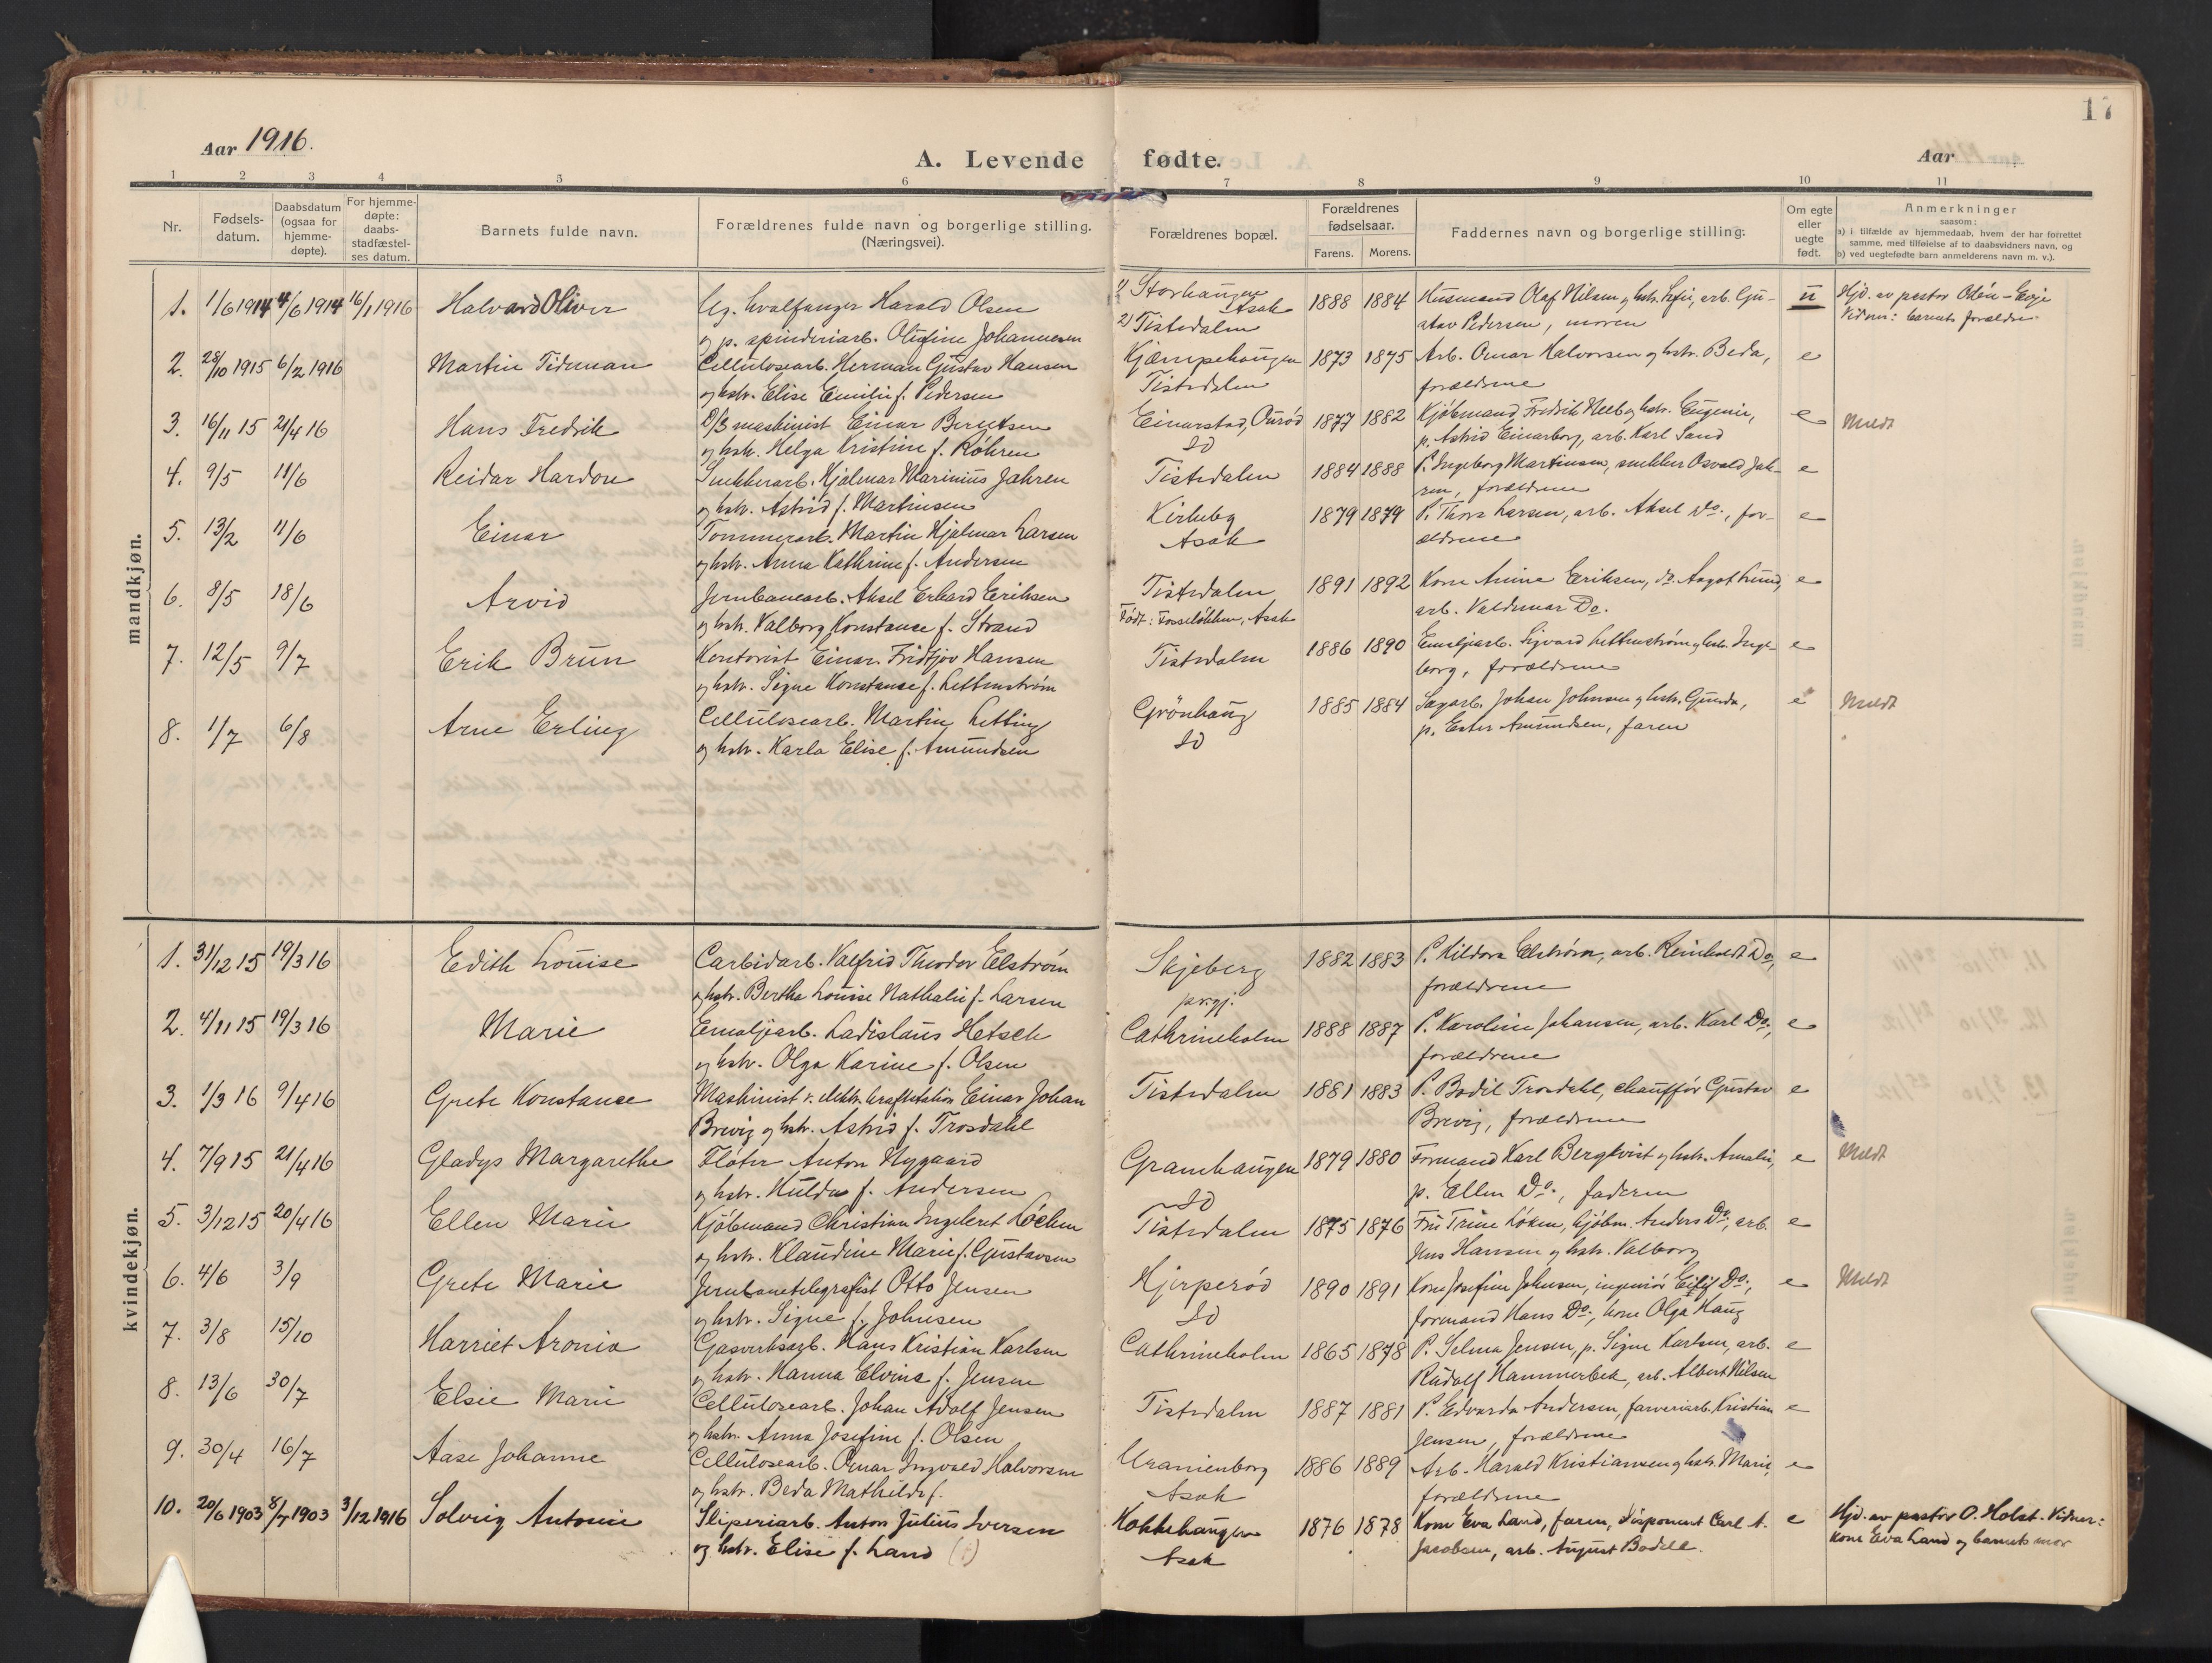 17
Aar 1916.
A. Levende fødte.
Aar
1 2 3 4 5 6 7 8 9 10 11
Nr.
Fødsels-
datum.
Daabsdatum
(ogsaa for
hjemme-
døpte).
For hjemme-
døpte:
daabs-
stadfæstel-
ses datum.
Barnets fulde navn.
Forældrenes fulde navn og borgerlige stilling.
(Næringsvei).
Forældrenes bopæl.
Forældrenes
fødselsaar.
Farens. Morens.
Faddernes navn og borgerlige stilling.
Om egte
eller
uegte
født.
Anmerkninger
saasom:
a) i tilfælde av hjemmedaab, hvem der har forrettet
samme, med tilføielse af to daabsvidners navn, og
b) ved uegtefødte barn anmelderens navn m. v.).
mandkjøn.
1. 1/6 1914 4/6 1914 16/1 1916 Halvard Oliver Ug. hvalfanger Harald Olsen 1) Storhaugen Asak 1888 1884 Husmand Olaf Nilsen og hstr. Sofie, arb. Gu- u Hjd. av pastor Odén - Evje
og p. spinderiarb. Olufine Johannesen 2) Tistedalen stav Pedersen, moren Vidner: barnets forældre.
2. 28/10 1915 6/2 1916 Martin Tideman Cellulosearb. Herman Gustav Hansen Kjæmpehaugen 1873 1875 Arb. Omar Halvorsen og hstr. Beda, e
og hstr. Elise Emilie f. Pedersen Tistedalen forældrene
3. 16/11 15 21/4 16 Hans Fredrik D/S maskinist Einar Berntsen Einarstad, Ourød 1877 1882 Kjøbmand Fredrik Neeb og hstr. Eugenie, e Meldt
og hstr. Helga Kristine f. Røhren Id p. Astrid Einarborg, arb. Karl Sand
4. 9/5 11/6 Reidar Hardon Snekkerarb. Hjalmar Marinius Jahren Tistedalen 1884 1888 P. Ingeborg Martinsen, snekker Osvald Jah- e
og hstr. Astrid f. Martinsen ren, forældrene
5. 13/2 11/6 Einar Tommerarb. Martin Hjalmar Larsen Kirkeby 1879 1879 P. Thora Larsen, arb. Aksel Do., for- e
og hstr. Anna Kathrine f. Andersen Asak ældrene
6. 8/5 18/6 Arvid Jernbanearb. Aksel Erhard Eriksen Tistedalen 1891 1892 Kone Anine Eriksen, do. Aagot Lund, e
og hstr. Valborg Konstanse f. Strand Født: Fosseløkken, Asak arb. Valdemar Do.
7. 12/5 9/7 Erik Brun Kontorist Einar Fridtjov Hansen Tistedalen 1886 1890 Emeljearb. Sigvard Lettenstrøm og hstr. Inge- e
og hstr. Signe Konstanse f. Lettenstrøm borg, forældrene
8. 1/7 6/8 Arne Erling Cellulosearb. Martin Letting Grönhaug 1885 1884 Sagarb. Johan Johnsen og hstr. Gunda, e Meldt
og hstr. Karla Elise f. Amundsen Id p. Ester Amundsen, faren
kvindekjøn.
1. 31/12 15 19/3 16 Edith Louise Carbidarb. Valfrid Theodor Elstrøm Skjeberg 1882 1883 P. Hildora Elstrøm, arb. Reinholdt Do, e
og hstr. Bertha Louise Nathalie f. Larsen prgj. forældrene
2. 4/11 15 19/3 16 Marie Emaljearb. Ladislaus Hetsch Cathrineholm 1888 1887 P. Karoline Johansen, arb. Karl Do., e
og hstr. Olga Karine f. Olsen forældrene
3. 1/3 16 9/4 16 Grete Konstanse Maskinist v. elektr. kraftstation Einar Johan Tistedalen 1881 1883 P. Bodil Trosdahl, chauffør Gustav e
Brevig og hstr. Astrid f. Trosdahl Brevig, forældrene
4. 7/9 15 21/4 16 Gladys Margarethe Fløter Anton Nygaard Granehaugen 1879 1880 Formand Karl Bergkvist og hstr. Amalie, e Meldt
og hstr. Hulda f. Andersen Id p. Ellen Do., faderen
5. 3/12 15 20/4 16 Ellen Marie Kjøbmand Christian Ingebret Løcken Tistedalen 1875 1876 Fru Trine Løken, kjøbm. Anders Do., arb. e
og hstr. Klaudine Marie f. Gustavsen Jens Hansen og hstr. Valborg
6. 4/6 3/9 Grete Marie Jernbanetelegrafist Otto Jensen Hjerperød 1890 1891 Kone Josefine Johnsen, ingeniør Eilif Do., e Meldt
og hstr. Signe f. Johnsen Id formand Hans Do., kone Olga Haug
7. 3/8 15/10 Harriet Aronia Gasverksarb. Hans Kristian Karlsen Cathrineholm 1865 1878 P. Selma Jensen, p. Signe Karlsen, arb. e
og hstr. Hanna Elvine f. Jensen Rudolf Hammerbek, arb. Albert Nilsen
8. 13/6 30/7 Elsie Marie Cellulosearb. Johan Adolf Jensen Tistedalen 1887 1881 P. Edvarda Andersen, farveriarb. Kristian e
og hstr. Anna Josefine f. Olsen Jensen, forældrene
9. 30/4 16/7 Aase Johanne Cellulosearb. Omar Ingvald Halvorsen Uranienborg 1886 1889 Arb. Harald Kristiansen og hstr. Marie, e
og hstr. Beda Mathilde f. Asak forældrene
10. 20/6 1903 8/7 1903 3/12 1916 Solveig Antonie Sliperiarb. Anton Julius Iversen Kokkehaugen 1876 1878 Kone Eva Land, faren, disponent Carl A. e Hjd. av pastor O. Holst. Vidner:
og hstr. Elise f. Land (†) Asak Jacobsen, arb. August Bodell. kone Eva Land og barnets mor